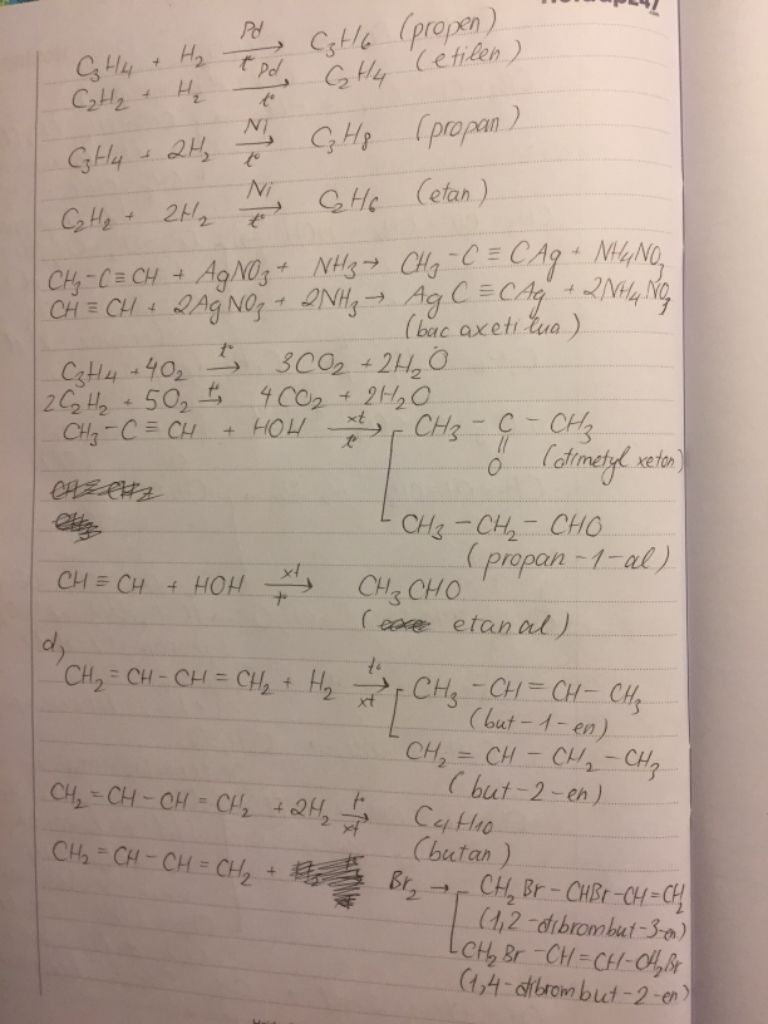 C3H4 + H2 —Pd, t°→ C3H6 (propen)
C2H2 + H2 —Pd, t°→ C2H4 (etilen)
C3H4 + 2H2 —Ni, t°→ C3H8 (propan)
C2H2 + 2H2 —Ni, t°→ C2H6 (etan)
CH3-C≡CH + AgNO3 + NH3 → CH3-C≡CAg + NH4NO3
CH≡CH + 2AgNO3 + 2NH3 → AgC≡CAg + 2NH4NO3
(bac axetilua)
C3H4 + 4O2 —t°→ 3CO2 + 2H2O
2C2H2 + 5O2 —t°→ 4CO2 + 2H2O
CH3-C≡CH + HOH —xt, t°→ CH3 - C - CH3
|| O (đimetyl xeton)
CH3 - CH2 - CHO
(propan-1-al)
CH≡CH + HOH —xt, t°→ CH3CHO
(etanal)
d,
CH2=CH-CH=CH2 + H2 —t°, xt→ CH3-CH=CH-CH3
(but-1-en)
CH2=CH-CH2-CH3
(but-2-en)
CH2=CH-CH=CH2 + 2H2 —t°, xt→ C4H10
(butan)
CH2=CH-CH=CH2 + Br2 → CH2Br-CHBr-CH=CH2
(1,2-đibrombut-3-en)
CH2Br-CH=CH-CH2Br
(1,4-đibrombut-2-en)